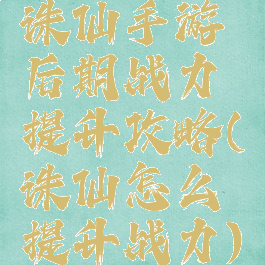 诛仙手游
后期战力
提升攻略(
诛仙怎么
提升战力)